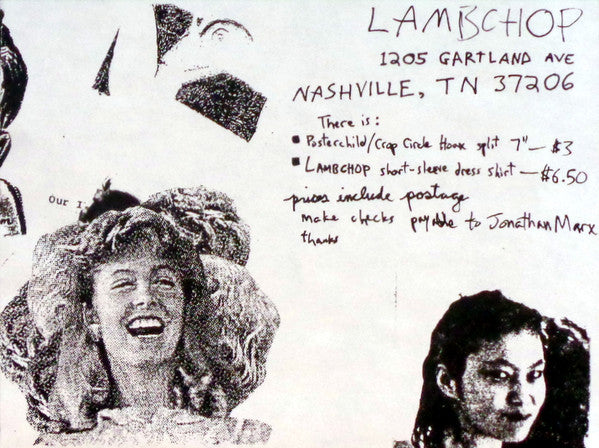 LAMBCHOP
1205 GARTLAND AVE
NASHVILLE, TN 37206
There is:
▪ Posterchild/Crop Circle Hoax split 7" — $3
▪ LAMBCHOP short-sleeve dress shirt — $6.50
prices include postage
make checks payable to Jonathan Marx
thanks
Our I